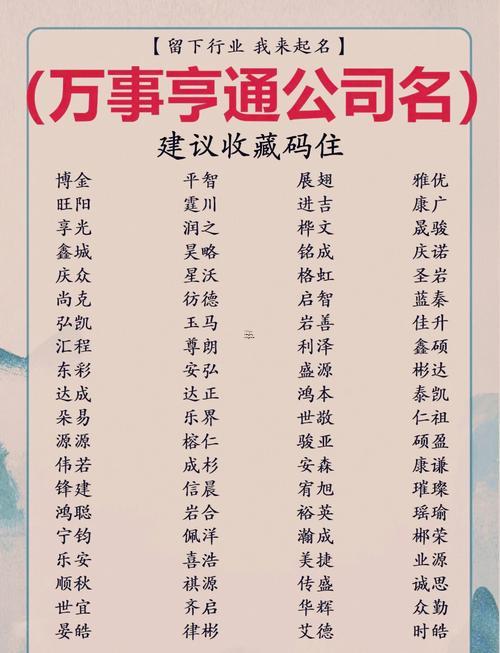 【留下行业 我来起名】
（万事亨通公司名）
建议收藏码住
博金 平智 展翅 雅优
旺阳 霆川 进吉 康广
享光 润之 桦文 晟骏
鑫城 昊略 铭成 庆诺
庆众 星沃 格虹 圣岩
尚克 彷德 启智 蓝秦
弘凯 玉马 岩善 佳升
汇程 尊朗 利泽 鑫硕
东彩 安弘 盛源 彬达
达成 达正 鸿本 泰凯
朵易 乐界 世敬 仁祖
源源 榕仁 骏亚 硕盈
伟若 成杉 安森 康谦
锋建 信晨 宥旭 璀璨
鸿聪 岩合 裕英 瑶瑜
宁钧 佩洋 瀚成 郴荣
乐安 喜浩 美捷 业源
顺秋 祺源 传盛 诚思
世宜 齐启 华辉 众勤
晏皓 律彬 艾德 时皓